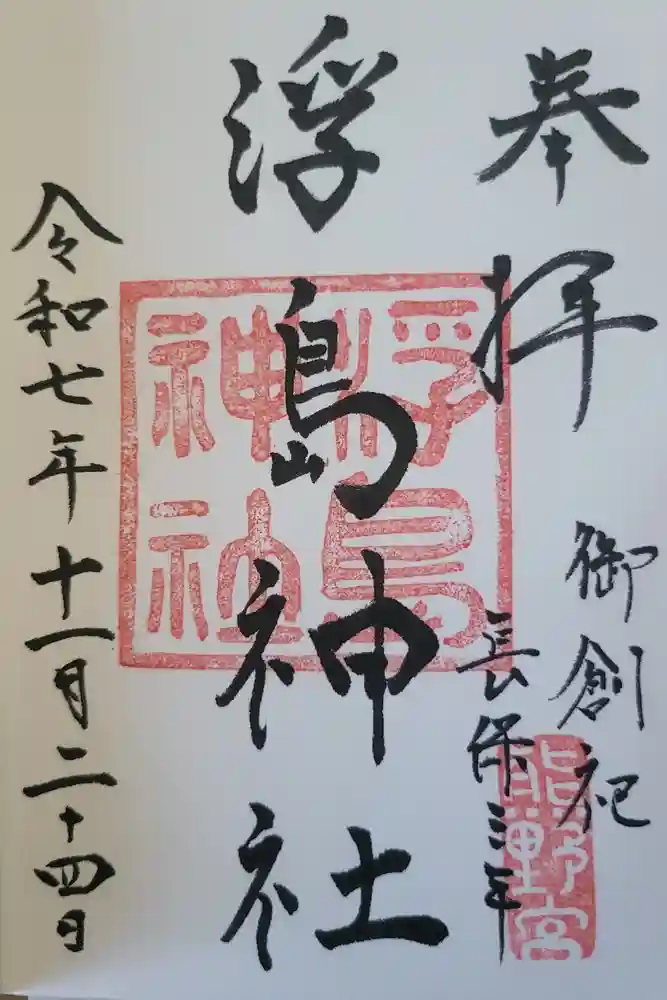 奉拝
御創祀
長保三年
熊野宮
浮島神社
浮島神社
令和七年十一月二十四日